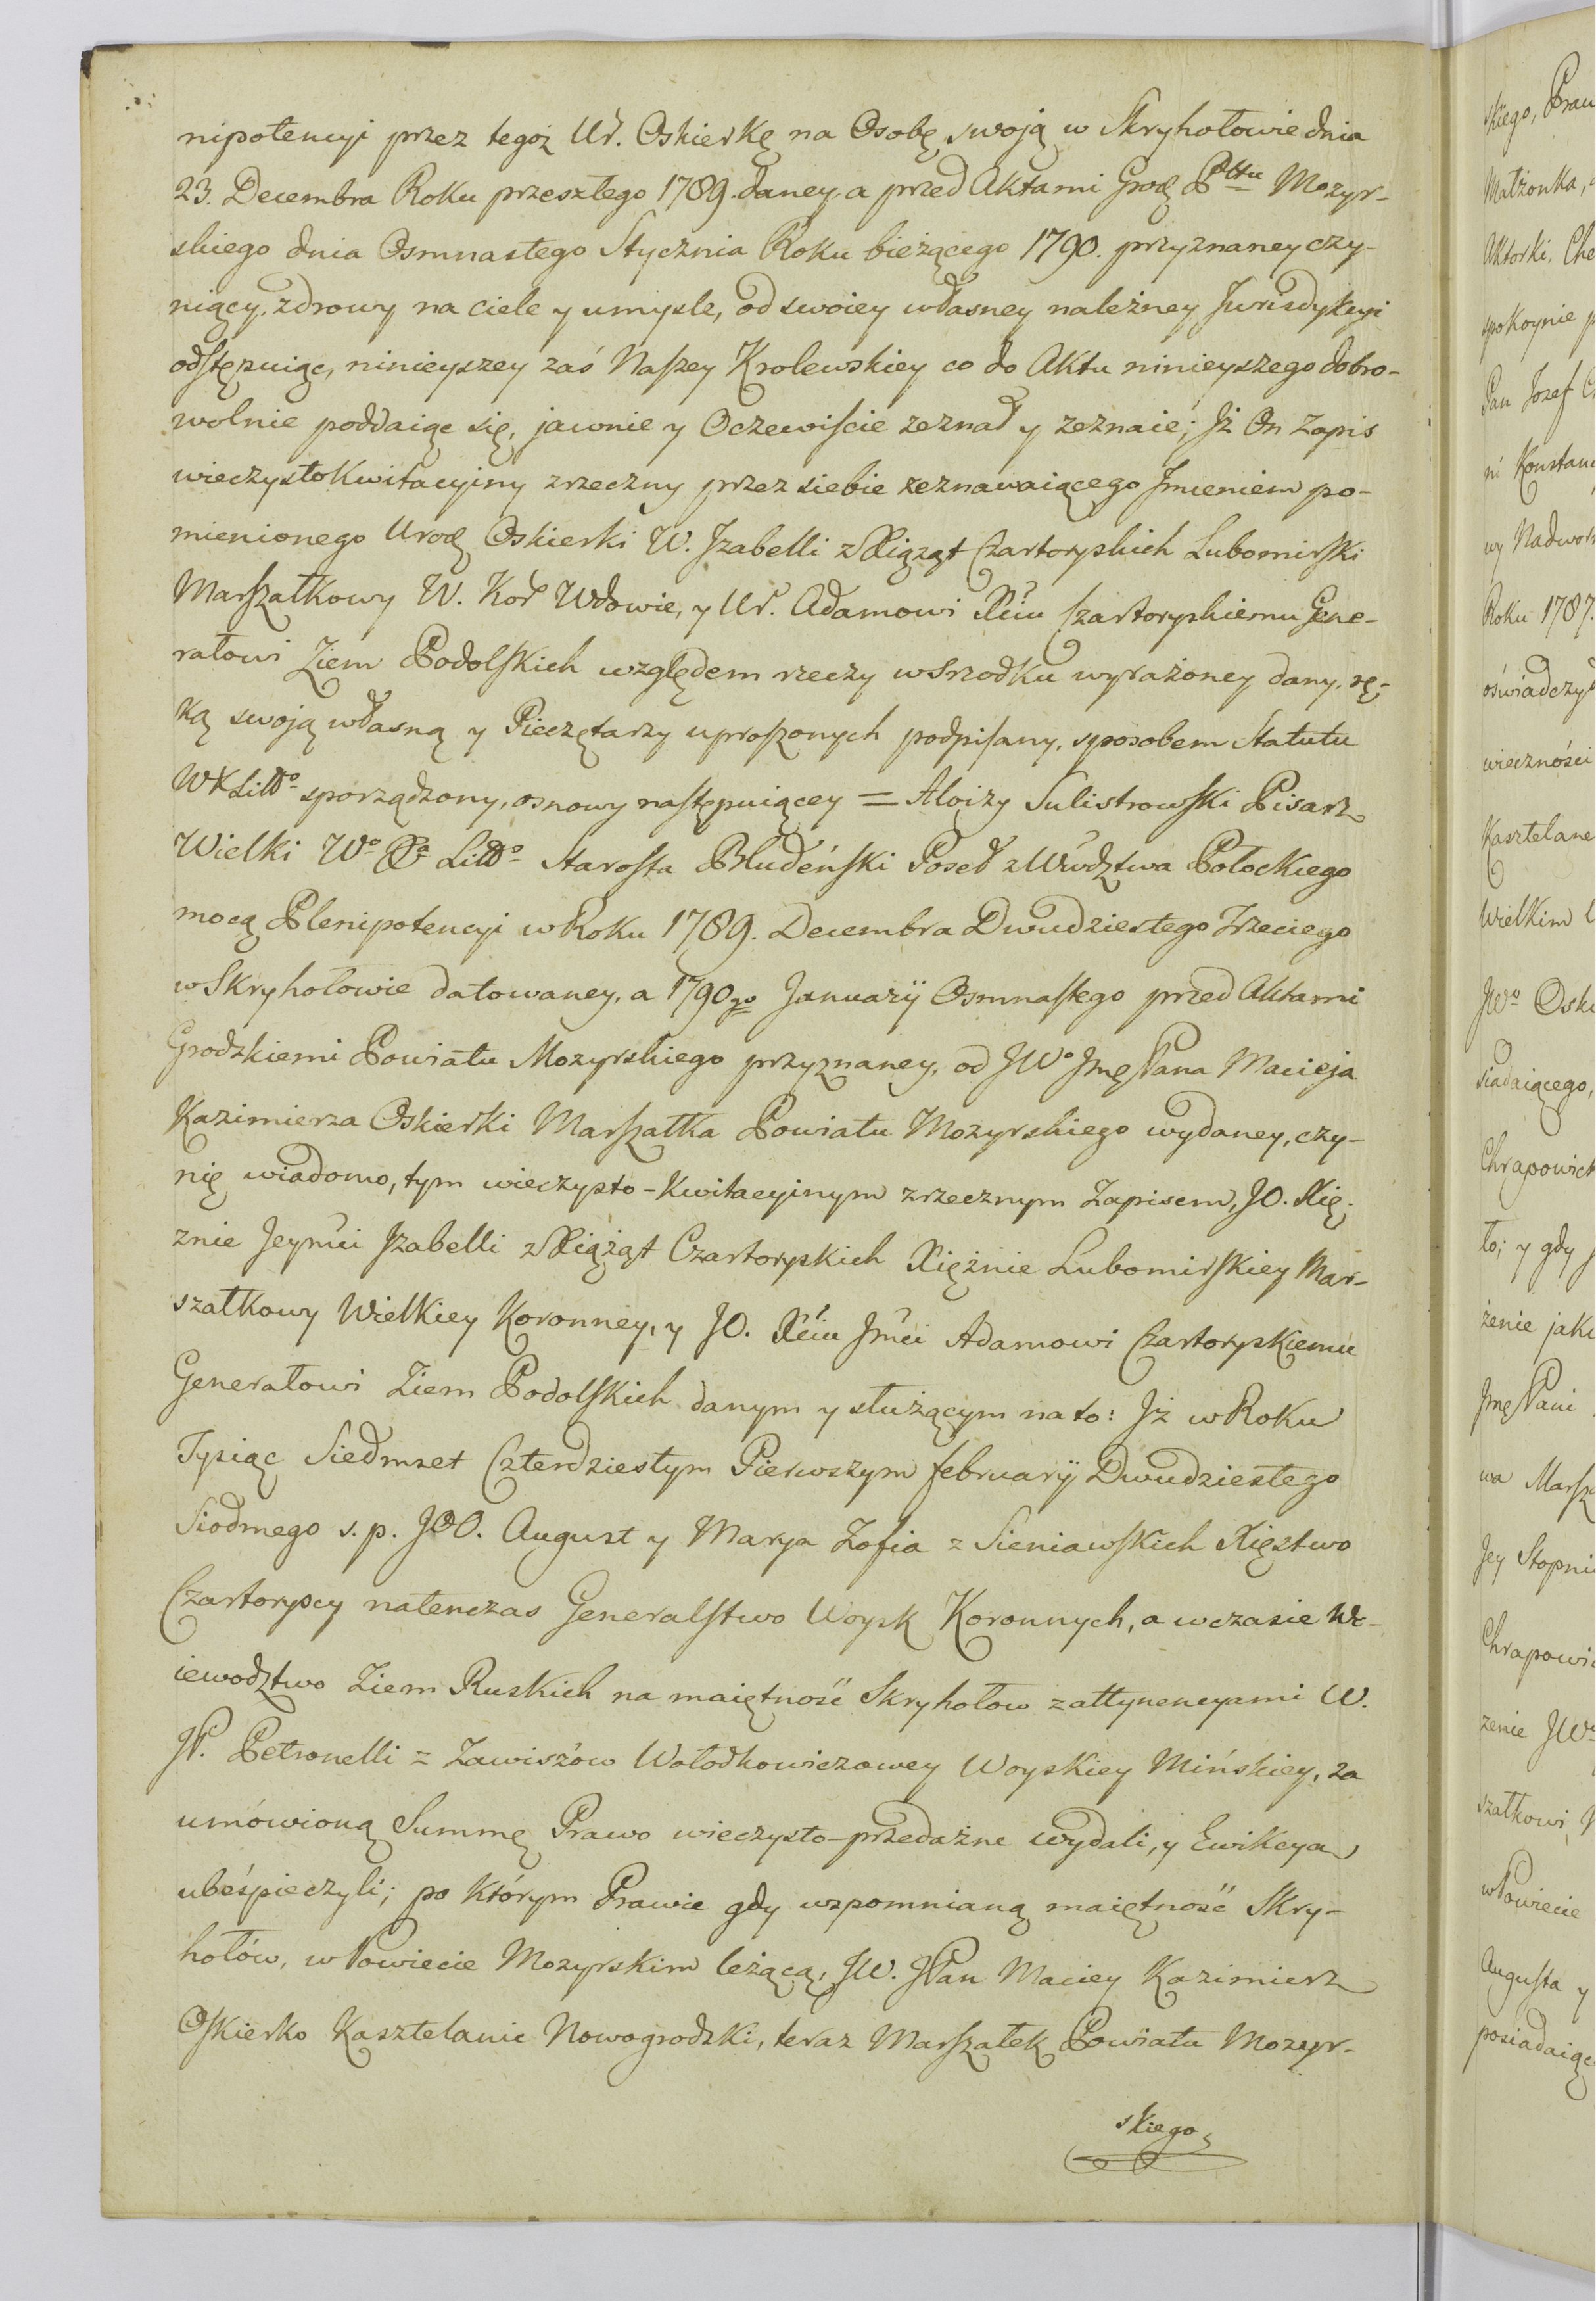 nipotencyi przez tegoż Ur. Oskierkę na Osobę swoją w Skryhołowie dnia
23. Decembra Roku przeszłego 1789. daney, a przed Aktami Grod Pttu Mozyr-
skiego dnia Osmnastego Stycznia Roku bieżącego 1790. przyznaney czy-
niący, zdrowy na ciele y umysle, od swoiey własney należney Jurisdykcyi
odstępuiąc, ninieyszey zaś Naszey Krolewskiey co do Aktu ninieyszego dobro-
wolnie poddaiąc się, jawnie y Oczewiście zeznał y zeznaie; Jż On Zapis
wieczystokwitacyiny zrzeczny przez siebie zeznawaiącego Jmieniem po-
mienionego Urod Oskierki W. Jzabelli z Xiążąt Czartoryskich Lubomirski
Marszałkowy W. Kor Wdowie, y Ur. Adamowi Xciu Czartoryskiemu Gene-
rałowi Ziem Podolskich względem rzeczy w srzodku wyrażoney dany, rę-
ką swoją własną y Pieczętarzy uproszonych podpisany, sposobem Statutu
WXLittº sporządzony, osnowy następuiącey = Aloizy Sulistrowski Pisarz
Wielki Wº Xª Littº Starosta Bludeński Poseł z Wwdztwa Połockiego
mocą Plenipotencyi w Roku 1789. Decembra Dwudziestego Trzeciego
w Skryhołowie datowaney, a 1790go Januarÿ Osmnastego przed Aktami
Grodzkiemi Powiatu Mozyrskiego przyznaney, od JWº Jmę Pana Macieja
Kazimierza Oskierki Marszałka Powiatu Mozyrskiego wydaney, czy-
nię wiadomo, tym wieczysto-kwitacyinym zrzecznym Zapisem, JO. Xię-
znie Jeymci Jzabelli z Xiążąt Czartoryskich Xiężnie Lubomirskiey Mar-
szałkowy Wielkiey Koronney, y JO. Xciu Jmci Adamowi Czartoryskiemu
Generałowi Ziem Podolskich danym y służącym na to: Jż w Roku
Tysiąc Siedmset Czterdziestym Pierwszym februarÿ Dwudziestego
Siodmego s. p. JOO. August y Marya Zofia z Sieniawskich Xięstwo
Czartoryscy natenczas Generalstwo Woysk Koronnych, a w czasie Wo-
iewodztwo Ziem Ruskich na maiętność Skryhołow z attynencyami W.
JP. Petronelli z Zawiszów Wołodkowiczowey Woyskiey Mińskiey, za
umówioną Summę Prawo wieczysto-przedażne wydali, y Ewikcya
ubeśpieczyli; po którym Prawie gdy wspomnianą maiętność Skry-
hołów, w Powiecie Mozyrskim leżącą, JW. JPan Maciey Kazimierz
Oskierko Kasztelanic Nowogrodzki, teraz Marszałek Powiatu Mozyr-
skiego
skiego, Praw
Małżonka,
Aktorki, Che
spokoynie p
Pan Jozef C
ni Konstan
wy Nadwor
Roku 1787.
oświadczył
wieczności
Kasztelane
Wielkim
JWº Oski
siadaiącego,
Chrapowick
to; y gdy J
żenie jak
Jmę Pani
wa Marsza
Jey Stopni
Chrapowi
zenie JWº
szałkowi,
w Powiecie
Augusta y
posiadaiąc